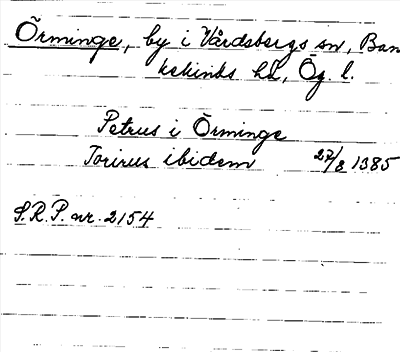 Örminge, by i Vårdsbergs sn, Ban
kekinds hd, Ög. l.
Petrus i Örminge
Torirus ibidem 27/8 1385
S.R.P. nr. 2154